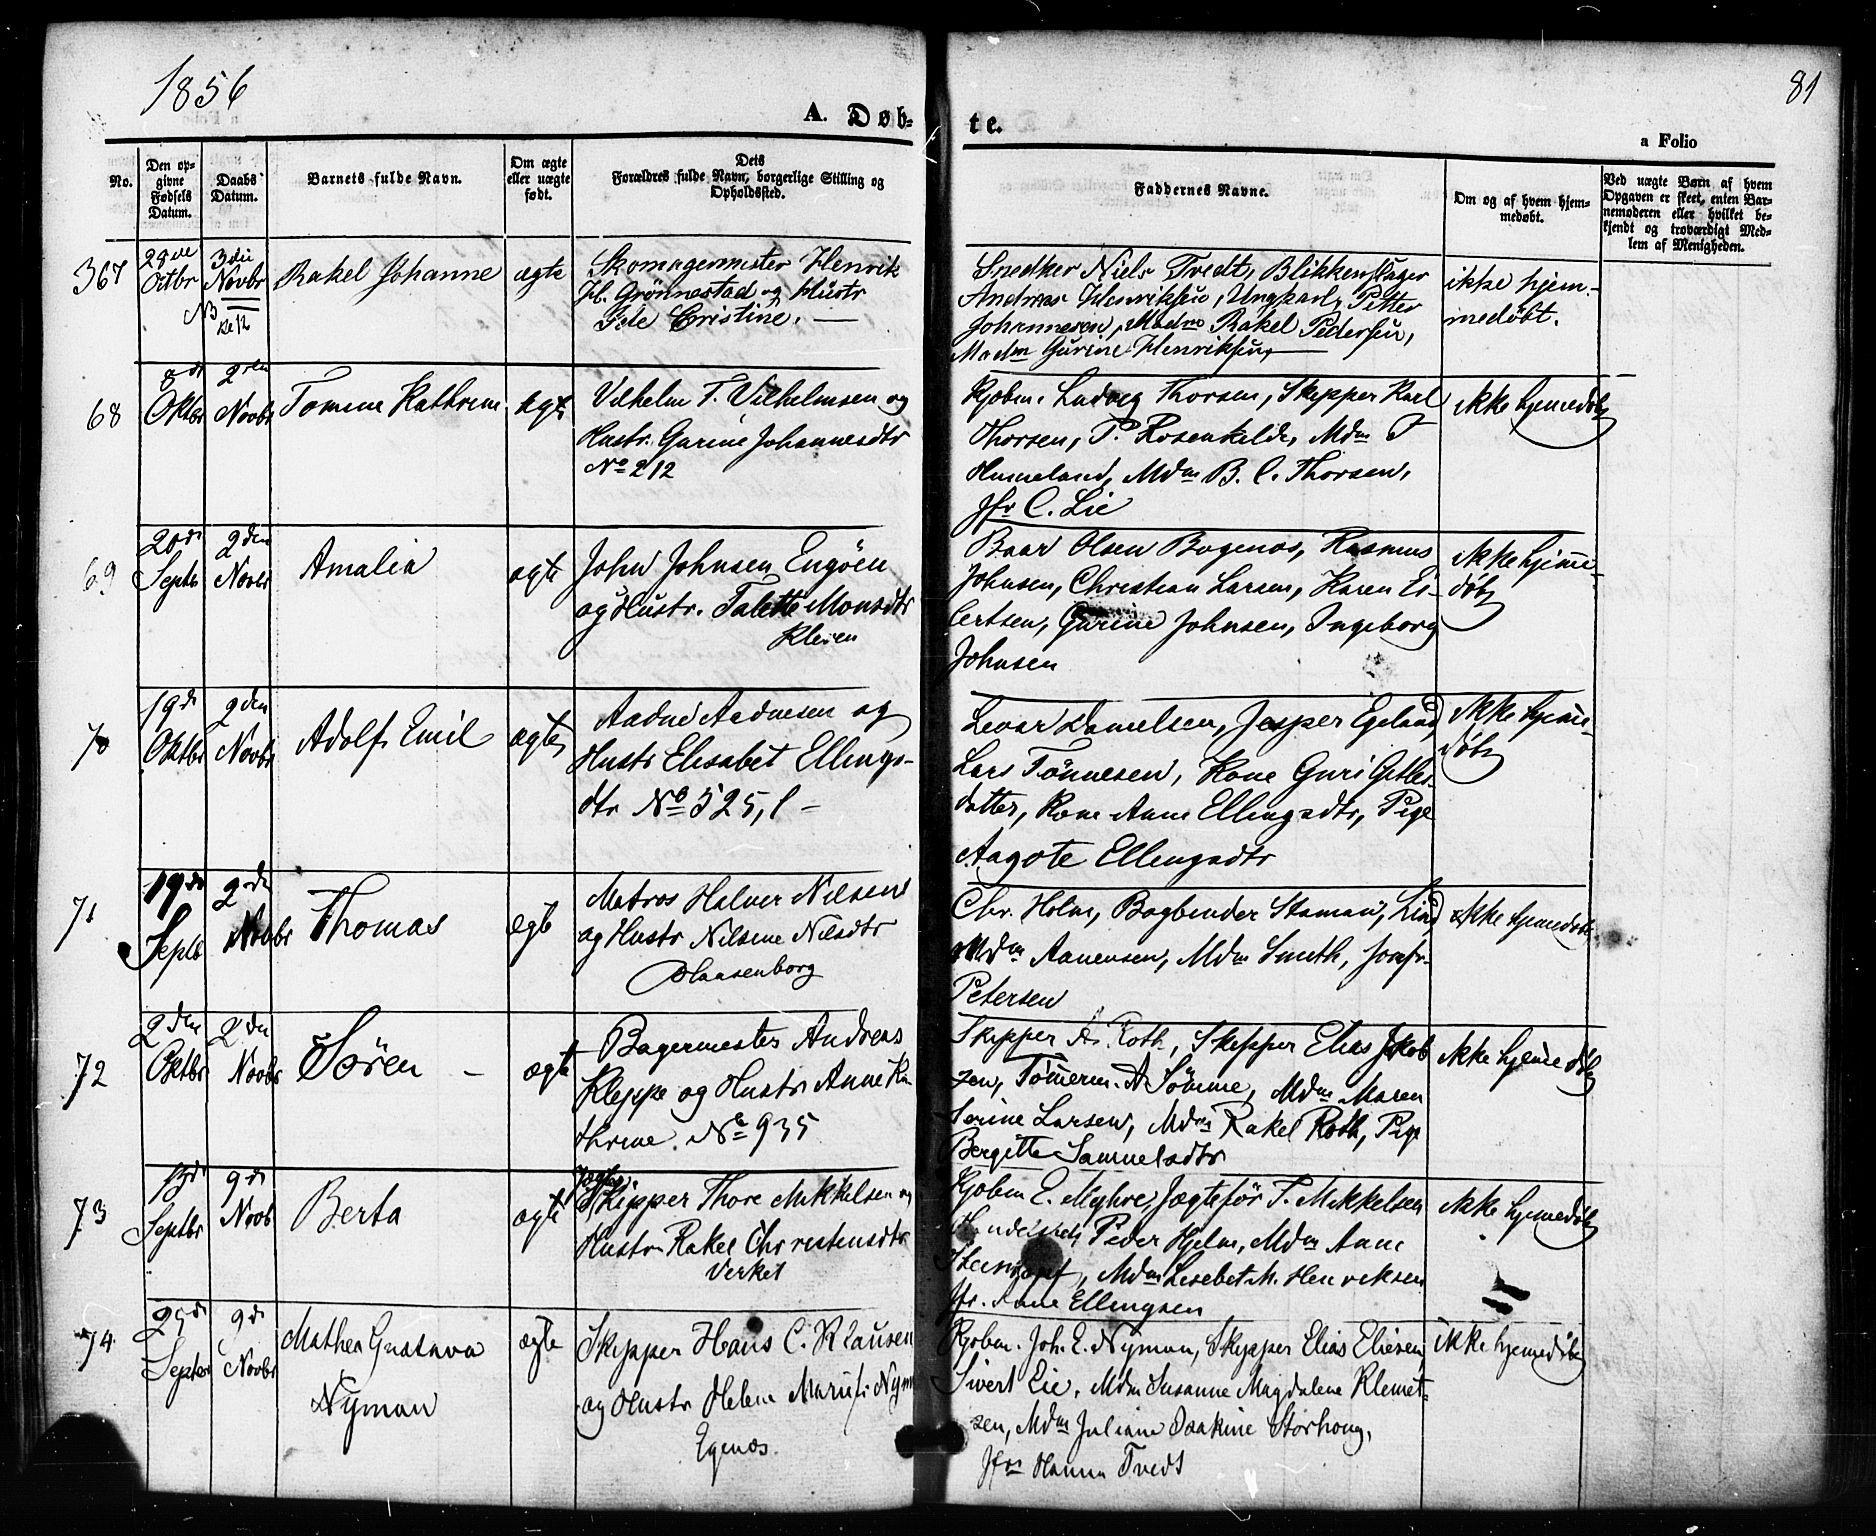 1856
81
A. Døb-
te.
a Folio
No.
Den op-
givne
Fødsels
Datum.
Daabs
Datum.
Barnets fulde Navn.
Om ægte
eller uægte
født.
Dets
Forældres fulde Navn, borgerlige Stilling og
Opholdssted.
Faddernes Navne.
Om og af hvem hjem-
medøbt.
Ved uægte Børn af hvem
Opgaven er skeet, enten Bar-
nemoderen eller hvilket be-
kjendt og troværdigt Med-
lem af Menigheden.
367
Octbr
3die
Novbr
Rakel Johanne
ægte
Skomagermester Henrik
H. Grönnestad og Hustr
Cristine.
Snedker Niels Tvedt, Blikkenslager
Andreas Henriksen, Ungkarl Petter
Johannesen, Madm Rakel Pedersen,
Madm Gurine Henriksen,
ikke hjem-
medøbt.
68
8de
Oktbr
2den
Novbr
Tomine Kathrine
ægte
Vilhelm T. Vilhelmsen og
Hustr. Gurine Johannesdtr
No 212
Kjøbm. Ludvig Thorsen, Skipper Karl
Thorsen, P. Rosenkilde, Mdm
Hunneland, Mdm B. C. Thorsen,
Jfr C. Lie
ikke hjemmedøbt
69
20de
Septbr
2den
Novbr
Amalia
ægte
John Johnsen Engöen
og Hustr. Talette Monsdtr
Kleven
Baar Olsen Bogenæs, Rasmus
Johnsen, Christian Larsen, Karen Ei-
lertsen, Gurine Johnsen, Ingeborg
Johnsen
ikke hjemme-
døbt
70
19de
Oktbr
2den
Novbr
Adolf Emil
ægte
Aadne Aadnesen og
Hustr Elisabet Ellings-
dtr No 525, C
Levar Danielsen, Jesper Egeland,
Lars Tönnesen, Kone Guri Getles-
datter, Kone Anne Ellingsdtr, Pige
Aagote Ellingsdtr
ikke hjemme-
døbt
71
19de
Septb
2den
Novbr
Thomas
ægte
Matros Halver Nilsen
og Hustr Nilsine Nilsdtr
Blaasenborg
Chr. Holm, Bogbinder Stamaii, Lind,
Mdm Aanensen, Mdm Smith, Jomfr
Petersen
ikke hjemmedøbt
72
2den
Oktbr
2den
Novbr
Sören
ægte
Bagermester Andreas
Kleppe og Hustr Anne Ka-
thrine. No 935
Skipper A. Roth, Skipper Elias Jakob
sen, Tömerm. A Sömme, Mdm Maren
Serine Larsen, Mdm Rakel Roth, Pige
Bergitte Samuelsdtr
ikke hjemmedøbt
73
13de
Septbr
9de
Novb
Berta
ægte
Skipper Thore Mikkelsen og
Hustr Rakel Christensdtr
Verket
Kjøbm E. Meyhre, Jægteför T. Mikkelsen
Peder Hjelm, Mdm Anne
Mdm Lisebet M. Henriksen
Jfr. Anne Ellingsen
ikke hjemmedøbt
74
25de
Septbr
9de
Novbr
Mathea Gustava
Nyman
ægte
Skipper Hans C. Klausen
og Hustr Helene Marie f. Nym
Egenæs.
Kjøbm. Joh. E. Nyman, Skipper Elias Eliesen
Sivert Lie, Mdm Susanne Magdalene Klemet-
sen, Mdm Juliane Isakine Storhoug,
Jfr Hanna Tvedt
ikke hjemmedøbt